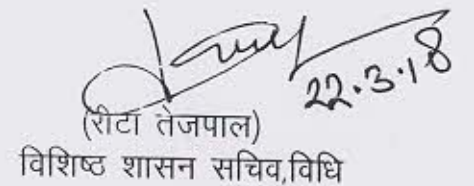 22.3.18
(रीटा तेजपाल)
विशिष्ट शासन सचिव,विधि